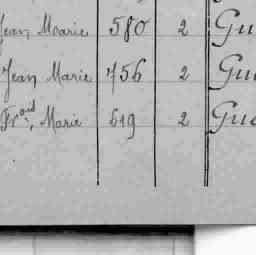 Jean Marie 580 2 Gu
Jean Marie 756 2 Gu
Frçois Marie 619 2 Gu